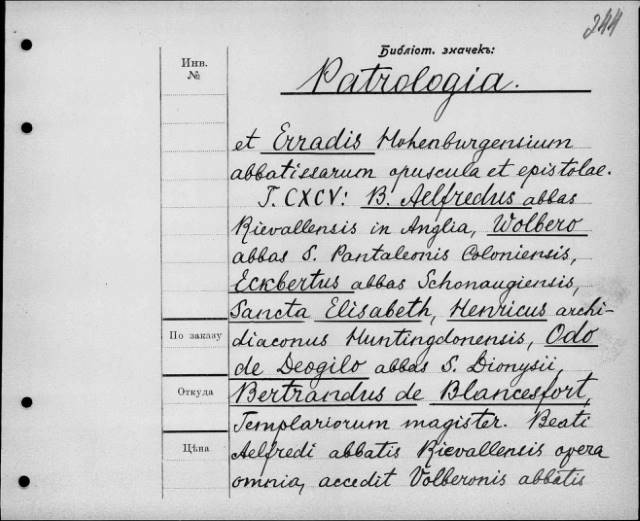 244
Библіот. значекъ:
Инв.
№
Patrologia.
et Erradis Hohenburgensium
abbatissarum opuscula et epistolae.
T. CXCV: B. Aelfredus abbas
Rievallensis in Anglia, Wolbero
abbas S. Pantaleonis Coloniensis,
Eckbertus abbas Schonaugiensis,
Sancta Elisabeth, Henricus archi-
diaconus Huntingdonensis, Odo
По заказу
de Deogilo abbas S. Dionysii,
Откуда
Bertrandus de Blancesfort,
Templariorum magister. Beati
Цѣна
Aelfredi abbatis Rievallensis opera
omnia, accedit Volberonis abbatis